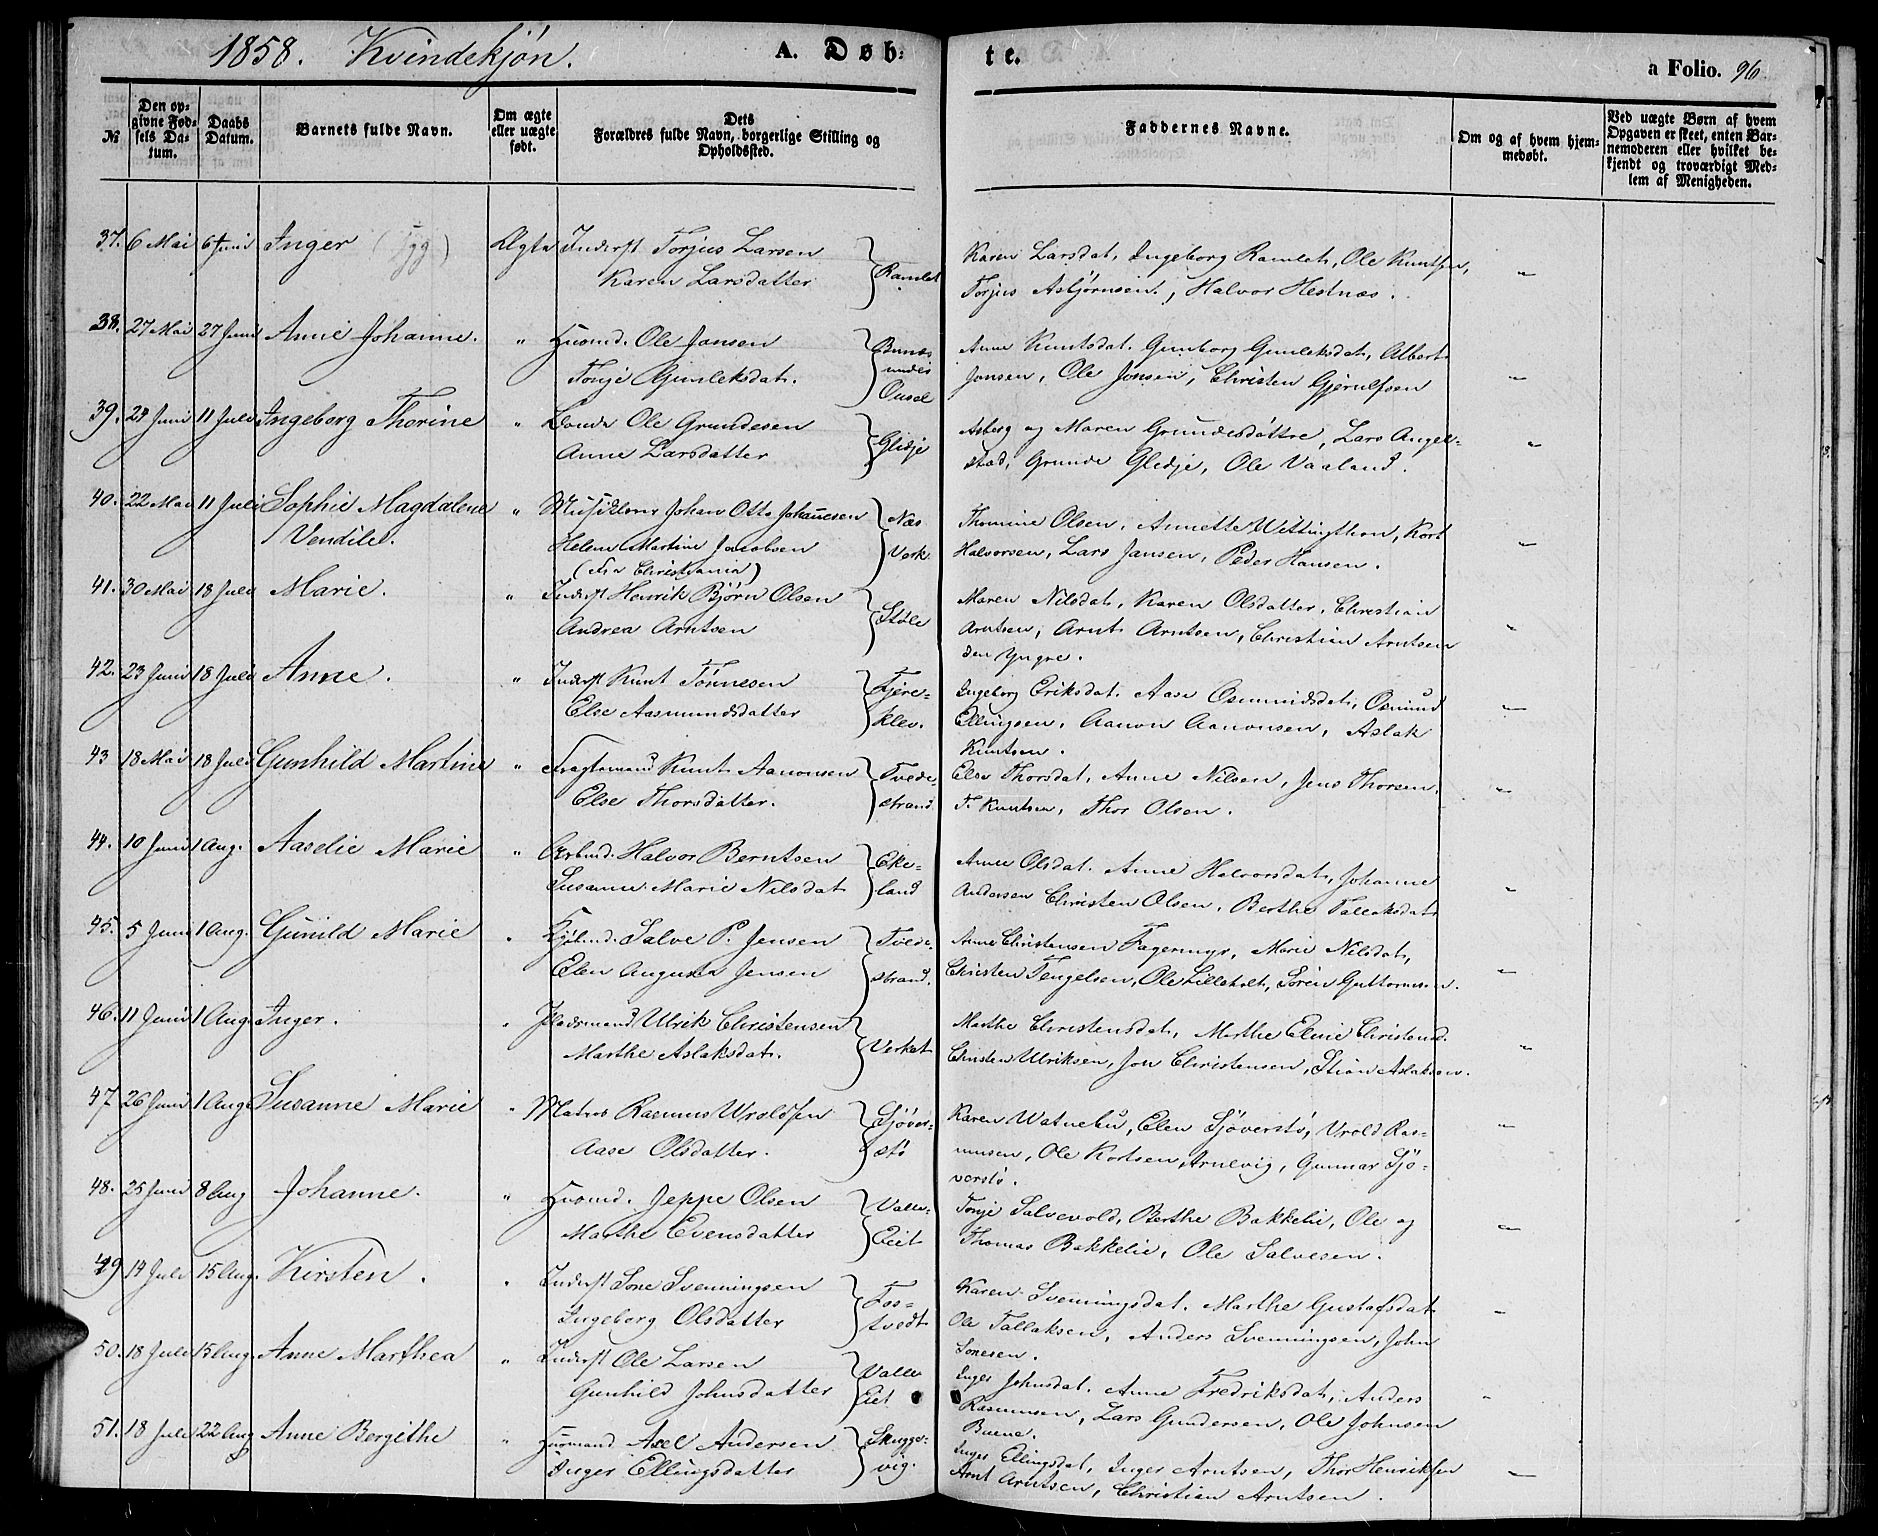 1858. Kvindekjøn. A. Døb= te. a Folio. 96
№
Den op=
givne Fød=
sels Da=
tum.
Daabs
Datum.
Barnets fulde Navn.
Om ægte
eller uægte
født.
Dets
Forældres fulde Navn, borgerlige Stilling og
Opholdssted.
Faddernes Navne.
Om og af hvem hjem=
medøbt.
Ved uægte Børn af hvem
Opgaven er skeet, enten Bar=
nemoderen eller hvilket be=
kjendt og troværdigt Med=
lem af Menigheden.
37. 6 Mai 6 Juni Inger Ægte Inderst Torjus Larsen Ramlet Karen Larsdat, Ingeborg Ramlet, Ole Knutsen, "
Karen Larsdatter Torjus Asbjørnsen, Halvor Hestnæs.
38. 27 Mai 27 Juni Anne Johanne. " Huusmd. Ole Jansen Anne Knutsdat. Gunborg Gunleksdat, Albert "
Tonje Gunleksdat. Jonsen, Ole Jonsen, Christen Gjerulfsen
39. 24 Juni 11 Juli Ingeborg Thorine " Bonde Ole Grundesen Gledje Asberg og Maren Grundesdøttre, Lars Angel= "
Anne Larsdatter stad, Grunde Gledje, Ole Vaaland.
40. 22 Mai 11 Juli Sophie Magdalene " Johan Otto Johannesen Næs Thomine Olsen, Annette Wittingthon, Kort "
Vendile. Helene Martine Jacobsen Verk Halvorsen, Lars Jansen, Peder Hansen.
(fra Christiania)
41. 30 Mai 18 Juli Marie. " Inderst Henrik Bjørn Olsen Støle Maren Nilsdat, Karen Olsdatter, Christian "
Andrea Arntsen Arntsen, Arnt Arntsen, Christian Arntsen
den Yngre.
42. 23 Juni 18 Juli Anne. " Inderst Knut Tønnesen Fjere= Ingeborg Eriksdat. Aase Osmundsdat, Osmund "
Else Aasmundsdatter klev. Ellingsen, Aanon Aanonsen, Aslak
Knutsen.
43 18 Mai 18 Juli Gunhild Martine " Fragtemand Knut Aanonsen Tvede= Else Thorsdat, Anne Nilsen, Jens Thorsen, "
Else Thorsdatter. strand T. Knutsen, Thor Olsen.
44. 10 Juni 1 Aug. Aaselie Marie " Arbmd. Halvor Berntsen Eke= Anne Olsdat. Anne Halvorsdat, Johanne "
Susanne Marie Nilsdat land Andersen Christen Olsen, Berthe Tallaksdat
45. 5 Juni 1 Aug. Gunild Marie " Kjøbmd. Salve P. Jensen Tvede= Anne Christensen Fagermyr, Marie Nilsdat, "
Elen Augusta Jensen strand. Christen Tengelsen, Ole Lilleholt, Søren Guttormsen.
46. 11 Juni 1 Aug Inger. " Pladsmand Ulrik Christensen Verket Marthe Christensdat, Marthe Elene Christensd. "
Marthe Aslaksdat. Christen Ulriksen, Jon Christensen, Stian Aslaksen.
47 26 Juni 1 Aug Susanne Marie " Matros Rasmus Wroldsen Sjøver= Karen Watnebu, Elen Sjøverstø, Vrold Ras= "
Aase Olsdatter. stø mussen, Ole Kortsen Arnevig, Gunnar Sjø=
verstø.
48. 25 Juni 8 Aug Johanne. " Huusmd. Jeppe Olsen Valle= Tonje Salvevold, Berthe Bakkelie, Ole og "
Marthe Evensdatter Eiet Thomas Bakkelie, Ole Salvesen.
49 14 Juli 15 Aug. Kirsten. " Inderst Sone Svenningsen Fos= Karen Svenningsdat. Marthe Gustafsdat. "
Ingeborg Olsdatter tvedt Ole Tallaksen, Anders Svenningsen, John
Sonesen.
50. 18 Juli 15 Aug. Anne Marthea " Inderst Ole Larsen Valle Inger Johnsdat. Anne Fredriksdat, Anders "
Gunhild Johnsdatter Eiet Rasmussen, Lars Gundersen, Ole Johnsen
Buene.
51. 18 Juli 22 Aug Anne Bergithe " Huusmand Axel Andersen Skugge= Inger Ellingsdat, Inger Arntsen, Thor Henriksen "
Inger Ellingsdatter vig. Arnt Arntsen, Christian Arntsen.